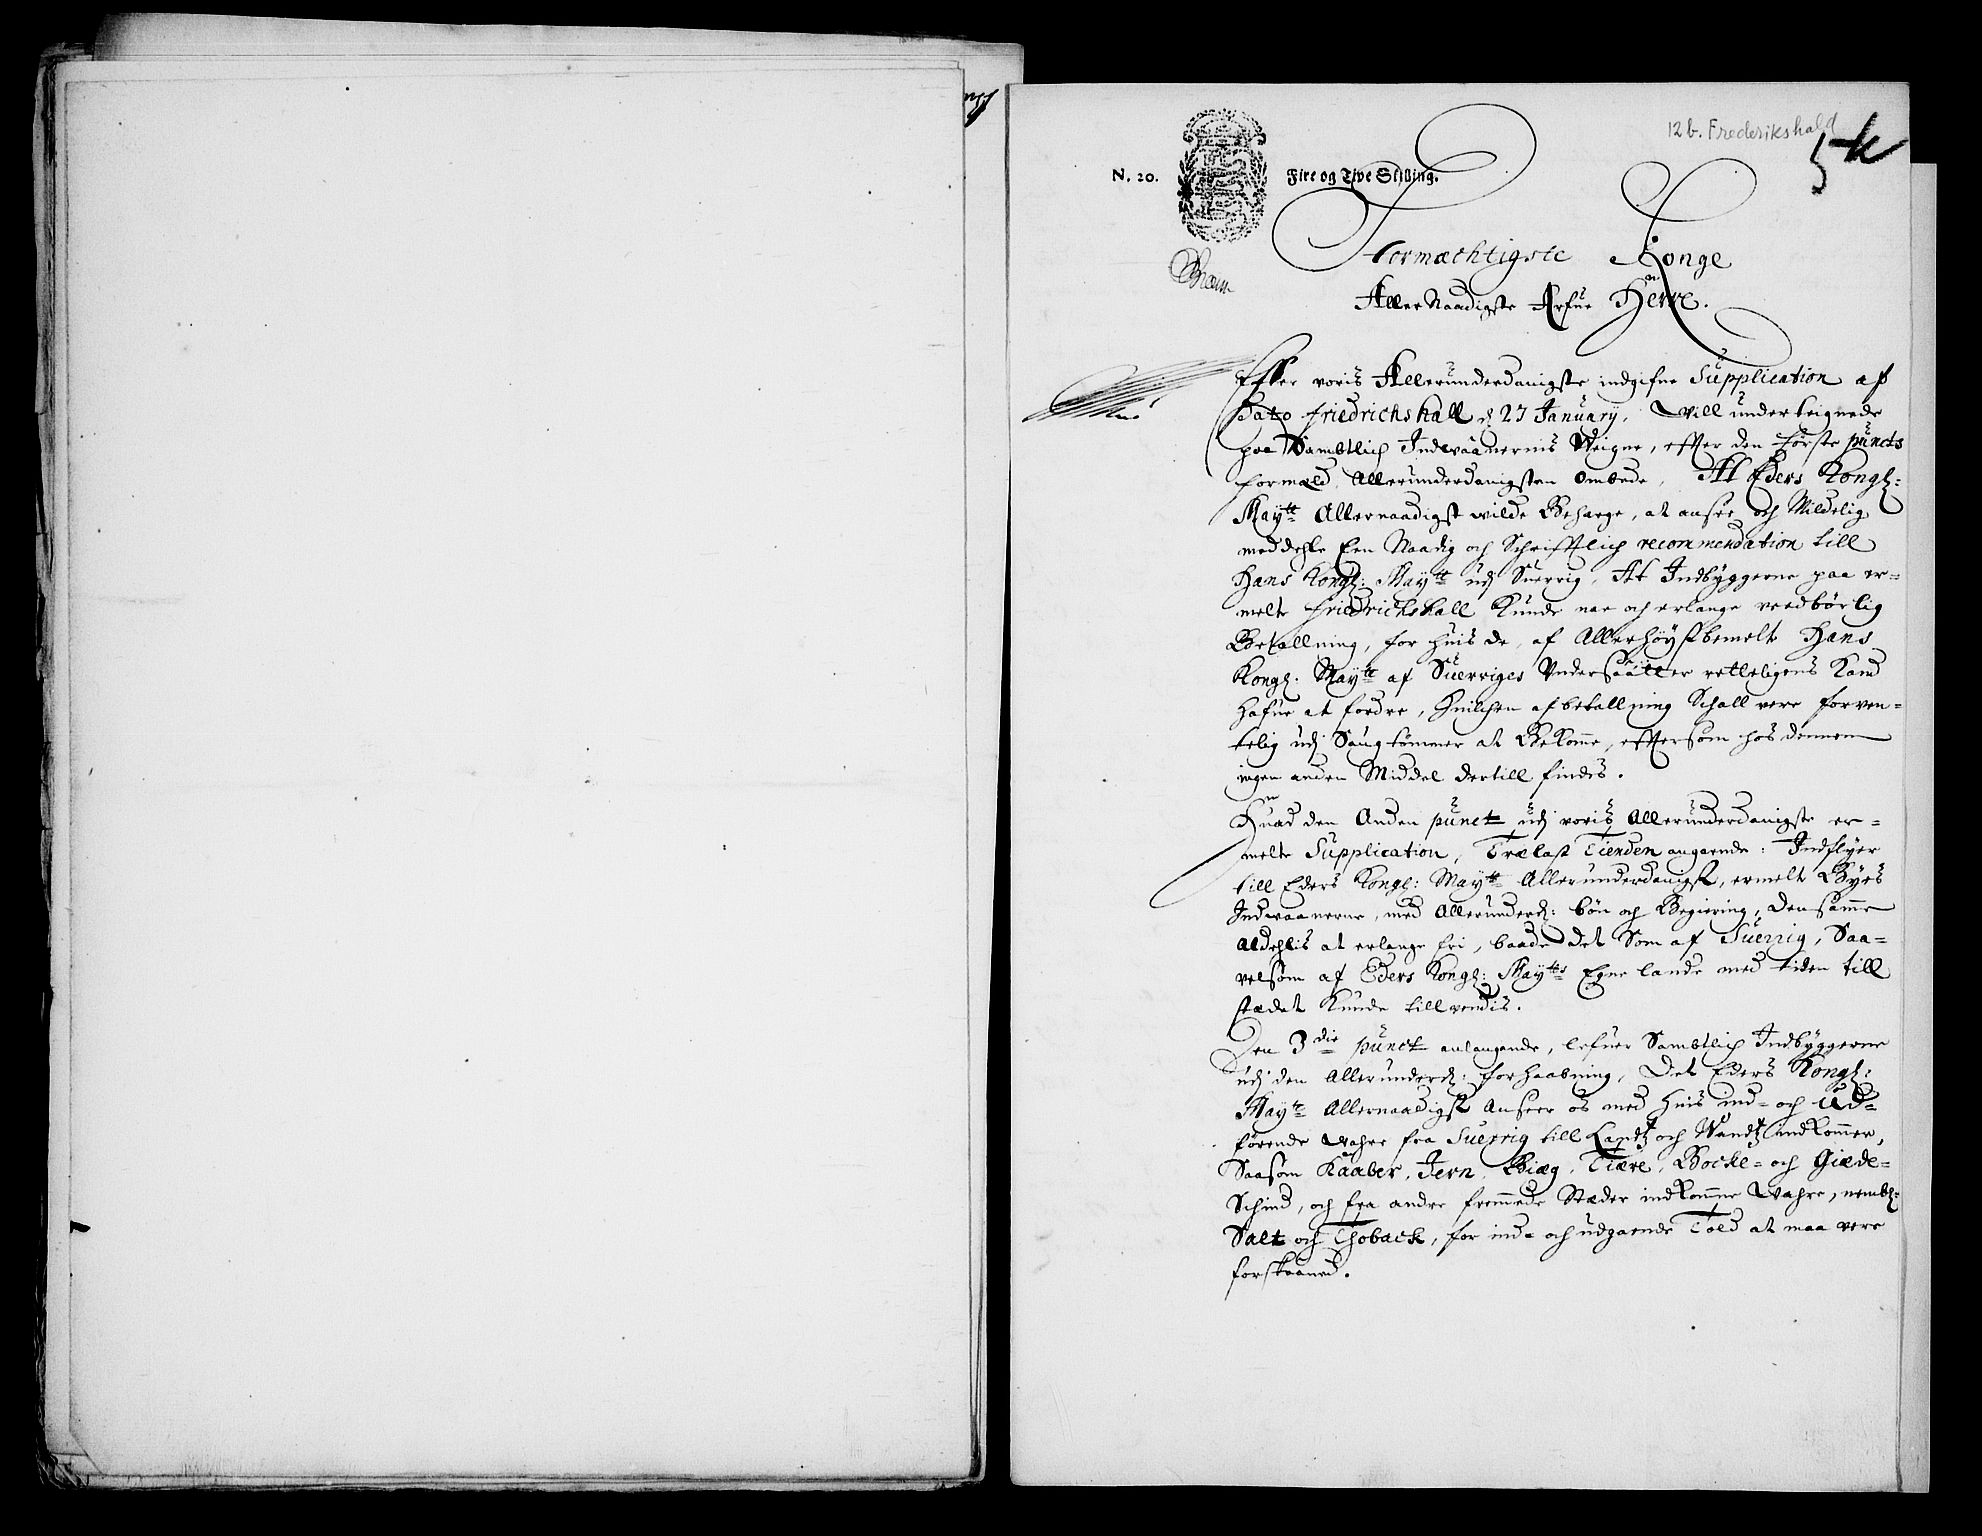 12b. Frederikshald
N. 20. Fire og Tive Skilling.
Stormæchtigste Konge
Aller Naadigste Arfue Herre.
Effter voris Allerunderdanigste indgifne Supplication af
Dato friedrichshall d 27 January, will underteignede
paa Sambtlich Indwaanernis Weigne, effter den første puncts
formeld, Allerunderdanigsten ombede, At Eders Kongl:
Maytt Allernaadigst wilde Behage, at ansee och Mildelig
meddehle Een Naadig och Schrifftlich recommendation till
Hans Kongl: Maytt udj Suerrig, At Indbyggerne paa er=
melte friedrichshall Kunde nae och erlange weedbørlig
Betallning, for huis de, af Allerhøystbemelte Hans
Kongl: Maytt af Suerriges Vndersaatter retteligens Kand
hafue at fordre, huilchen afbetallning Schall vere forven=
telig udj Saugtømmer at Bekomme, efftersom hos dennem
ingen anden Middel dertill findes.
Huad den Anden punct udj voris Allerunderdanigste er=
melte Supplication, Trælast Tienden angaende: Indflyer
till Eders Kongl: Maytt Allerunderdanigst, ermelt Byes
Indwaanerne, med Allerunderd: bøn och Begiering, Den samme
aldehlis at erlange fri, baade det Som af Suerrig, Saa=
velsom af Eders Kongl: Maytts Egne lande med tiden till
stædet Kunde tillvendis.
Den 3die punct anlangende, lefuer Sambtlich Indbyggerne
udj den Allerunderd: forhaabning, Det Eders Kongl:
Maytt Allernaadigst Anseer os med huis ind= och ud=
førende wahre fra Suerrig till Landtz och Wandtz indkommer,
Saasom Kaaber, Jern, Biæg, Tiære, Bocke= och Giede=
Schind, och fra andre fremmede Stæder indkomne Wahre, nembl:
Salt och Thoback, for ind= och udgaende Told at maa vere
forskaaned.